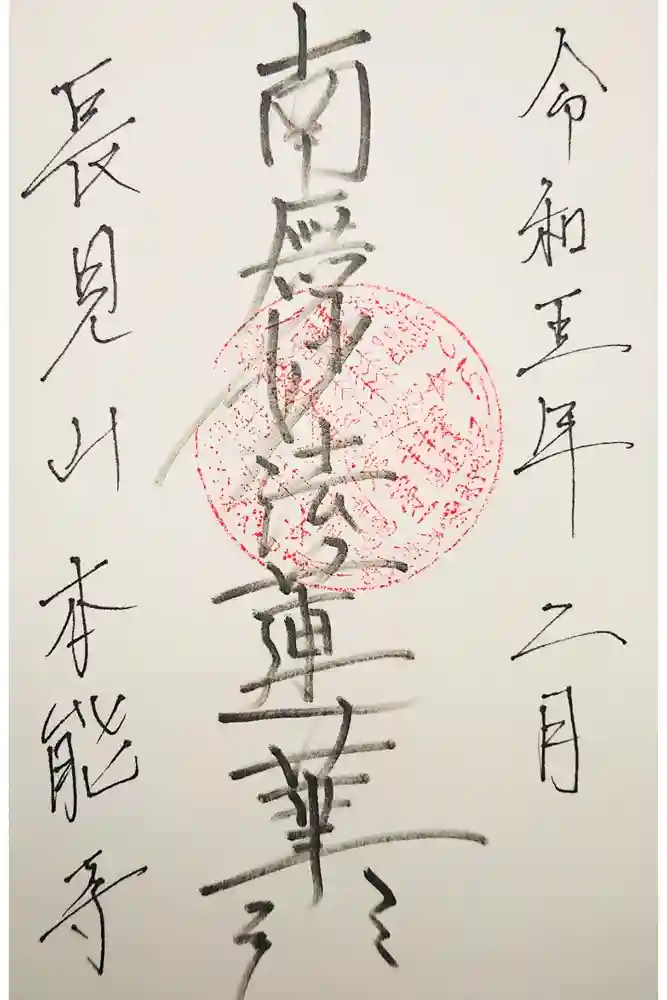 令和五年 二月
南無妙法蓮華経
長見山 本能寺